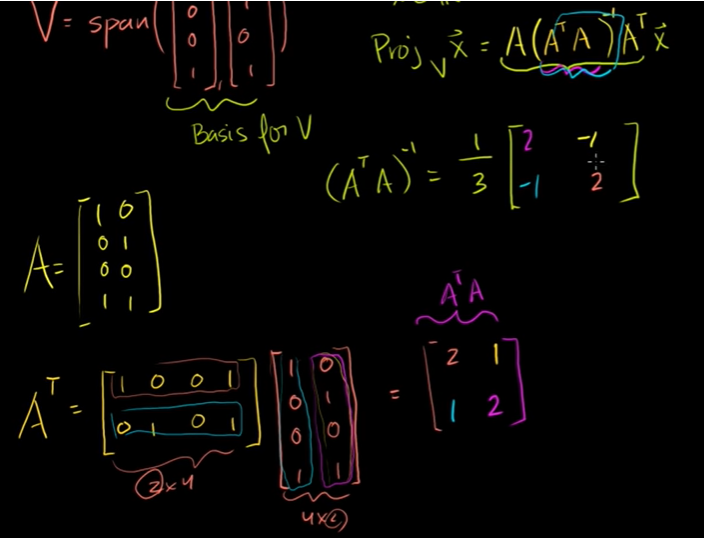 V = span([0 0 1], [1 0 1])
Basis for V
Proj_V x⃗ = A(AᵀA)⁻¹Aᵀx⃗
(AᵀA)⁻¹ = 1/3 [2 -1
-1 2]
A = [1 0
0 1
0 0
1 1]
AᵀA
Aᵀ = [1 0 0 1
0 1 0 1] [1 0
0 1
0 0
1 1] = [2 1
1 2]
2x4
4x2